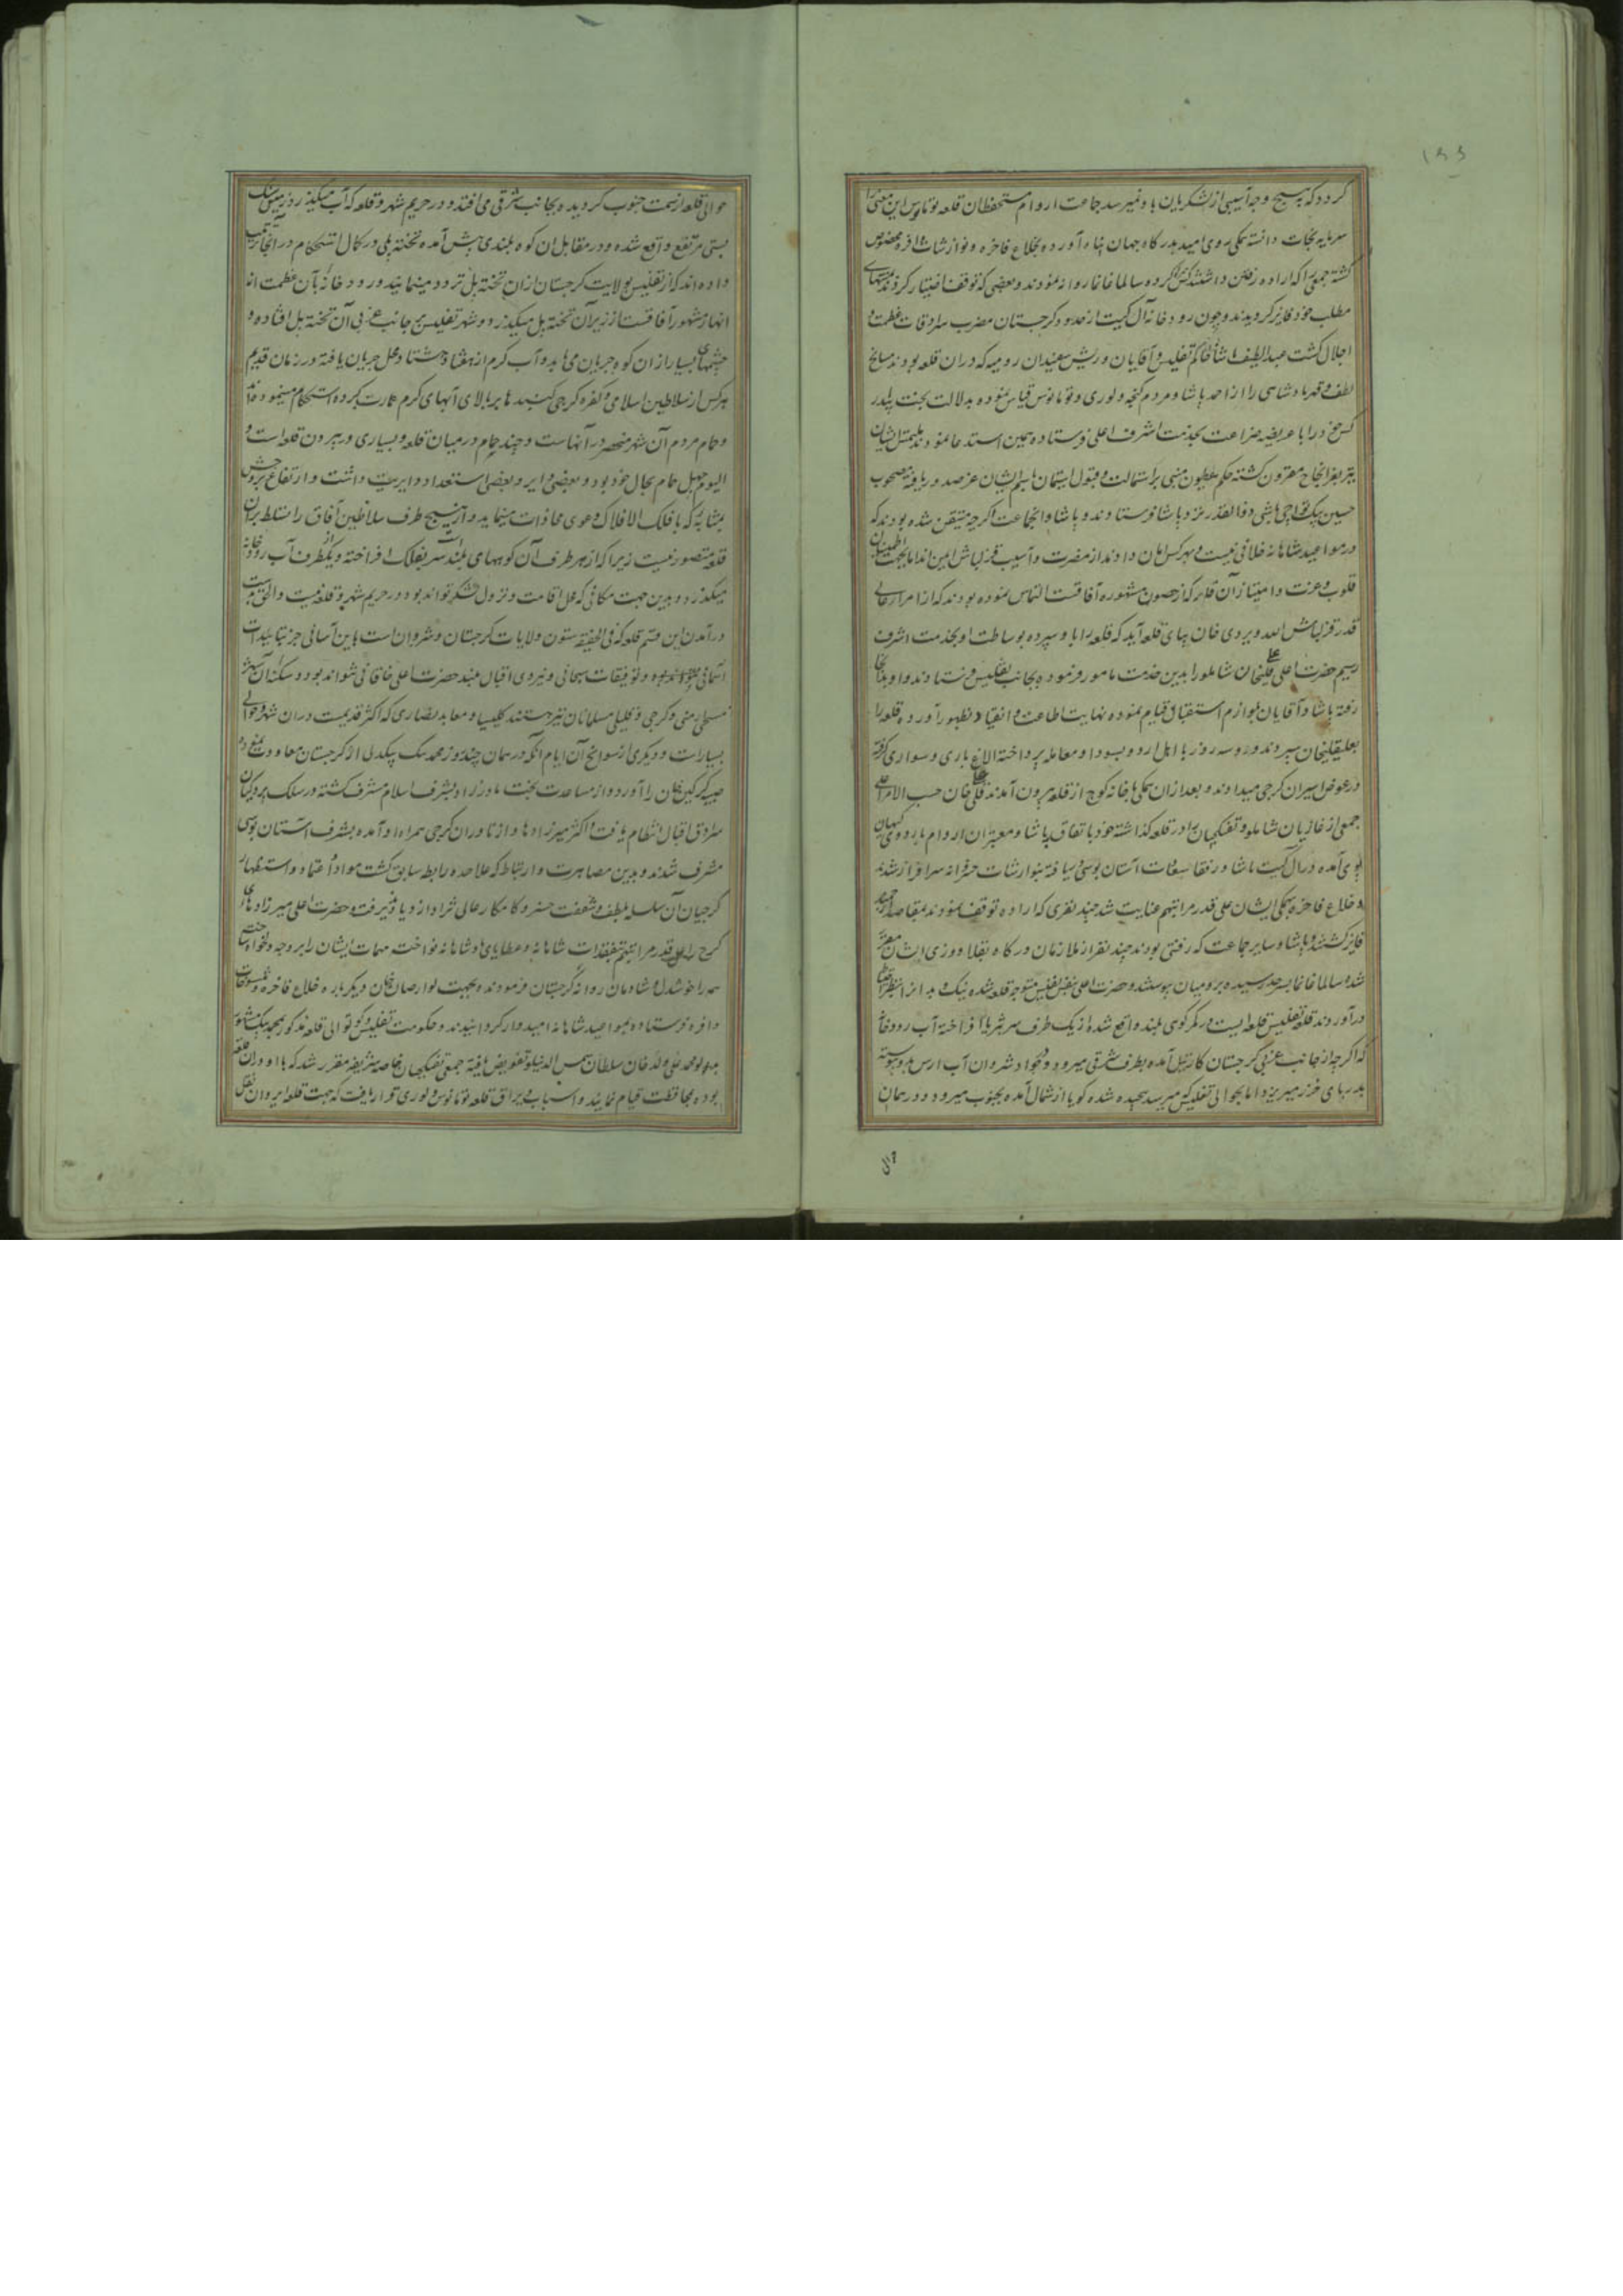 ۱۶۶
گردد که بهیچ وجه آسیبی از لشکریان باو نمیرسد جماعت اروام مستحفظان قلعه تومانوس این معنی را
سرمایه نجات دانسته همگی روی امید بدرگاه جهان پناه آورده بخلاع فاخره و نوازشات وافره مخصوص
گشته جمعی را که اراده رفتن داشتند کرده سالما غانما روانه نمودند و بعضی که توقف اختیار کردند بمنتهای
مطلب خود فایز گردیدند و چون رودخانه آل گیت از حدود گرجستان مضرب سرادقات عظمت و
اجلال گشت عبد اللطیف پاشا حاکم تفلیس و آقایان و ریش سفیدان رومیه که دران قلعه بودند مسایح
لطف و قهر پادشاهی را از احمد پاشا و مردم گنجه و لوری و تومانوس قیاس نموده بدلالت بخت بلند
کس خود را با عریضه ضراعت بخدمت اشرف اعلی فرستاده همین استدعا نمودند ملتمس ایشان
بتربعز انجاح مقرون گشته حکم همایون مبنی بر استمالت و قبول ایتمان باسم ایشان عز صدور یافته مصحوب
حسین بیک تواچی باشی ذوالقدر نزد پاشا فرستادند و پاشا و انجماعت اگرچه متیقن شده بودند که
در مواعید شاهانه خلافی نیست و بهر کس امان دادند از مضرت و آسیب قزلباش ایمن اند اما بجهت اطمینان
قلوب و عزت و امتیاز آن قلعه که از حصون مشهوره آفاقست التماس نموده بودند که از امرای عالی
قدر قزلباش الله ویردی خان بپای قلعه آید که قلعه را باو سپرده بوساطت او بخدمت اشرف
رسیم حضرت اعلی علی قلیخان شاملو را بدین خدمت مامور فرموده بجانب تفلیس فرستادند و او بدانجا
رفته پاشا و آقایان بلوازم استقبال قیام نموده نهایت اطاعت و انقیاد بظهور آورده قلعه را
بعلیقلیخان سپردند و دو سه روز با اهل اردو بسودا و معامله پرداخته الاغ باری و سواری گرفته
در عوض اسیران گرجی میدادند و بعد از ان همگی با خانه کوچ از قلعه بیرون آمدند علی قلی خان حسب الامر اعلی
جمعی از غازیان شاملو و تفنگچیان را در قلعه گذاشته خود باتفاق پاشا و معتبران اروام باردوی کیهان
پوی آمده در آل گیت پاشا و رفقا بسعادت آستان بوسی سرافراز یافته بنوازشات خسروانه سرافراز شدند
و خلاع فاخره بهمگی ایشان علی قدر مراتبهم عنایت شد چند نفری که اراده توقف نمودند بمقاصد ارجمند
فایز گشتند و پاشا و سایر جماعت که رفتنی بودند چند نفر از ملازمان درگاه بقلاووزی ایشان مقرر
شده سالما غانما بسرحد رسیده برومیان پیوستند و حضرت اعلی بنفس نفیس متوجه قلعه شده نیک و بد آنرا بنظر احتیاط
درآوردند قلعه تفلیس قلعه ایست در کمر کوهی بلند واقع شده از یک طرف سر بثریا افراخته آب رودخانه
که اگرچه از جانب غربی گرجستان کارتیل آمده بطرف شرقی میرود و در جواد شروان آب ارس بدو پیوسته
بدریای خزر میریزد اما بحوالی تفلیس که میرسد پیچیده شده گویا از شمال آمده بجنوب میرود و در همان
حوالی قلعه از سمت جنوب گردیده بجانب شرقی می افتد و در حریم شهر و قلعه که آب میگذرد زمینش سنگ
بستی مرتفع واقع شده و در مقابل ان کوه بلندی پیش آمده تخته پلی در کمال استحکام در آنجا ترتیب
داده اند که از تفلیس بولایت گرجستان از ان تخته پل تردد مینمایند و رودخانه بآن عظمت از
انهار مشهور آفاقست از زیر آن تخته پل میگذرد و شهر تفلیس بر جانب غربی آن تخته پل افتاده و
چشمهای بسیار از ان کوه جریان می یابد و آب گرم از هفتاد هشتاد محل جریان یافته و در زمان قدیم
هر کس از سلاطین اسلامی و کفره گرجی گنبدها بر بالای آبهای گرم عمارت کرده استحکام مینموده اند
و حمام مردم آن شهر منحصر در آنهاست و چند حمام در میان قلعه و بسیاری در بیرون قلعه است و
الیوم چهل حمام بحال خود بود و بعضی دایر و بعضی استعداد دایریت داشت و ارتفاع بروجش
بمثابه که با فلک الافلاک دعوی محاذات مینماید و از هیچ طرف سلاطین آفاق را تسلط بران
قلعه متصور نیست زیرا که از هر طرف آن کوههای بلند سر بفلک افراخته و یکطرف آب رودخانه
میگذرد و بدین جهت مکانی که محل اقامت و نزول لشکر تواند بود در حریم شهر و قلعه نیست والحق بدست
درآمدن این قسم قلعه که فی الحقیقه ستون ولایات گرجستان و شروان است باین آسانی جز بتاییدات
آسمانی و توفیقات سبحانی و نیروی اقبال بلند حضرت اعلی خاقانی نتواند بود و سکنه آن شهر
مسیحی ارمنی و گرجی و قلیلی مسلمانان نیز هستند کلیسیا و معابد نصاری که اکثر قدیمست دران شهر و حوالی
بسیارست و دیگری از سوانح آن ایام آنکه در همان چند روز محمد بیک بیکدلی از گرجستان معاودت نموده
صبیه گرگین خان را آورد و از مساعدت بخت مادرزاد بشرف اسلام مشرف گشته در سلک پردگیان
سرادق اقبال انتظام یافت و اکثر میرزادها و ازناوران گرجی همراه او آمده بشرف آستان بوسی
مشرف شدند و بدین مصاهرت و ارتباط که علاحده رابطه سابق گشت مواد اعتماد و استظهار
گرجیان آن سلسله بلطف و شفقت خسرو کامکار عالی نژاد ازدیاد پذیرفت و حضرت اعلی میرزادهای
گرجی را علی قدر مراتبهم بتفقدات شاهانه و عطایای پادشاهانه نواخته مهمات ایشان را بر وجه دلخواه ساخته
همه را خوشدل و شادمان روانه گرجستان فرمودند و بجهت لوارصاب خان دیگر باره خلاع فاخره و تنسوقات
وافره فرستاده بمواعید شاهانه امیدوار گردانیدند و حکومت تفلیس و کوتوالی قلعه مذکور بمحمد بیک مشهور
بولد محمدعلی ولد خان سلطان شمس الدینلو تفویض یافته جمعی تفنگچیان خاصه شریفه مقرر شد که با او در ان قلعه
بوده بمحافظت قیام نمایند و اسباب و یراق قلعه تومانوس و لوری قرار یافت که بجهت قلعه ایروان نقل